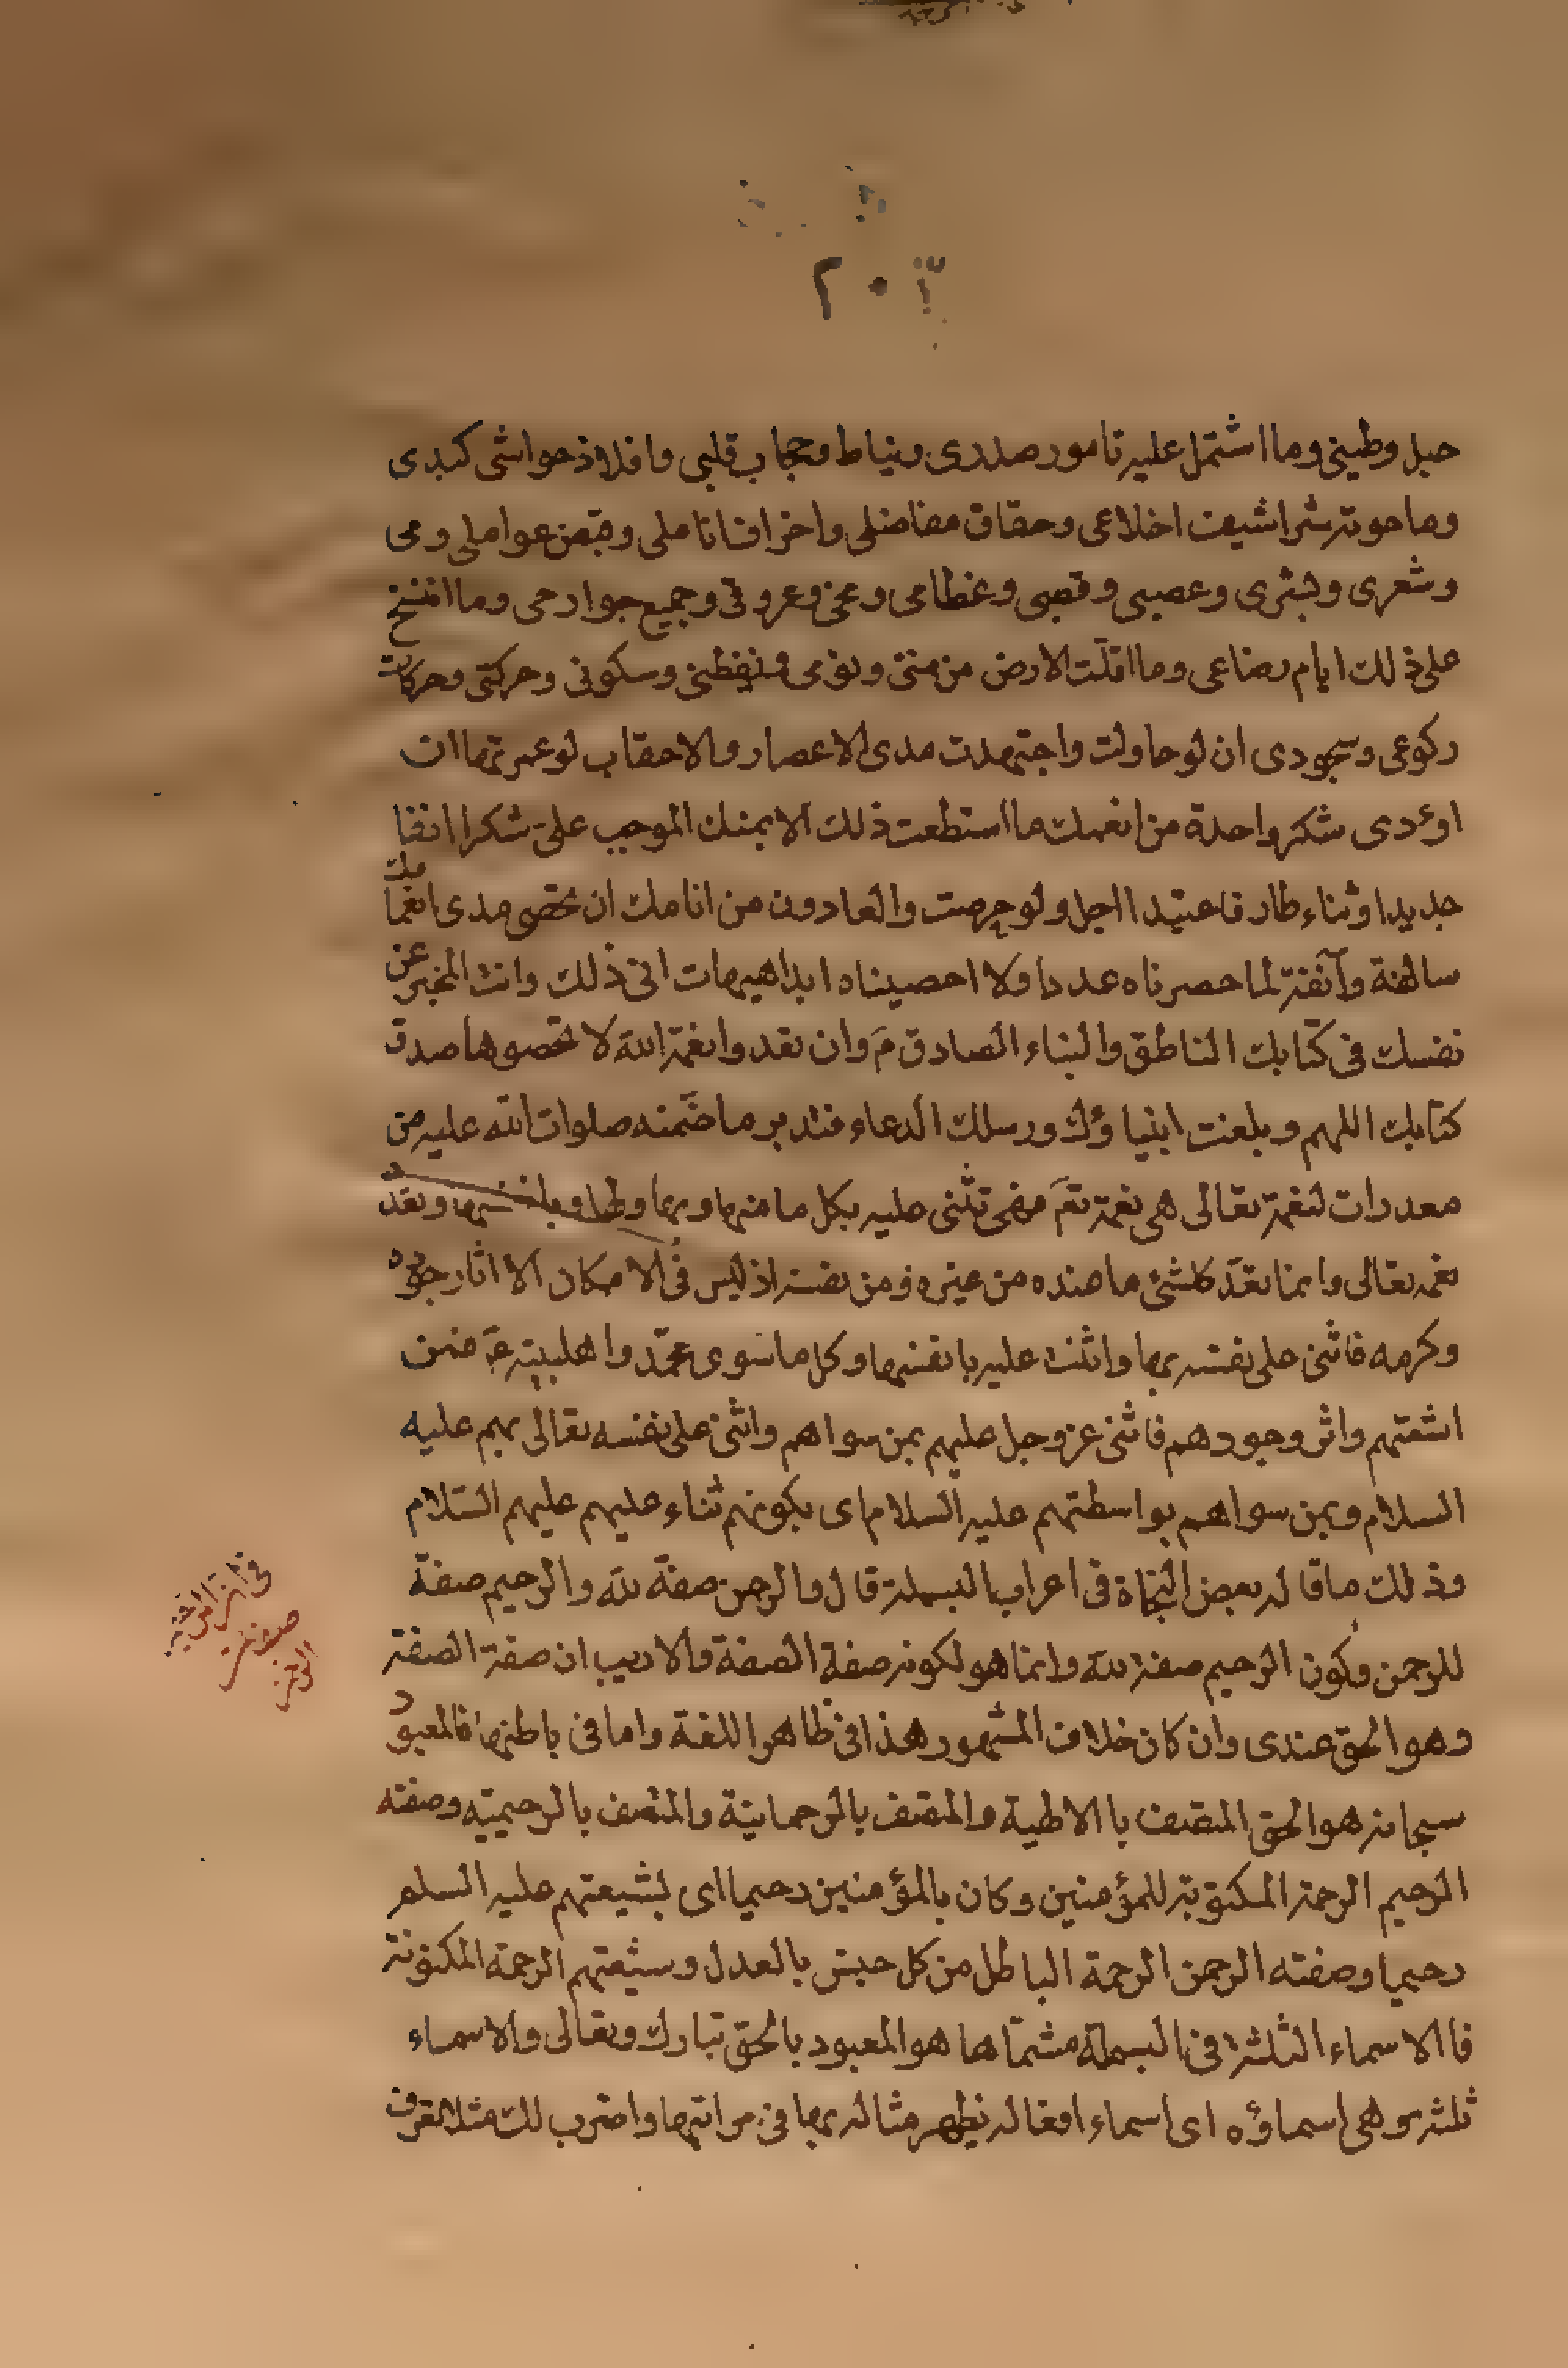 ٢٠
حبل وطيني وما اشتمل عليه تامور صدري ونياط وحجاب قلبي وافلاذ حواشي كبدي
وما حوته شراشيف اضلاعي وحقاق مفاصلي واطراف اناملي وقبض عواملي ودمي
وشعري وبشري وعصبي وقصبي وعظامي ومخي وعروقي وجميع جوارحي وما انتسج
على ذلك ايام رضاعي وما اقلّت الارض من منى ونومي ويقظتي وسكوني وحركتي وحركات
ركوعي وسجودي ان لو حاولت واجتهدت مدى الاعصار والاحقاب لو عمرتها ان
اؤدي شكر واحدة من انعمك ما استطعت ذلك الا بمنك الموجب عليّ شكرا انفا
جديدا وثناء طارفا عتيدا اجل ولو حرصت والعادون من انامك ان نحصي مدى انعامك
سالفة وآنفة لما حصرناه عددا ولا احصيناه ابدا هيهات انى ذلك وانت المخبر عن
نفسك في كتابك الناطق والبناء الصادق مَ وان تعدوا نعمة الله لا تحصوها صدق
كتابك اللهم وبلغت انبياؤك ورسلك الدعاء فتدبر ما ضمّنه صلوات الله عليه من
معدرات لنعمة تعالى هي نعمة تعَ فهي تثني عليه بكل ما منها وبها ولها وبانفسها وبعد
نعمه تعالى وانما نعدّ كلشئ ما عنده من غيره ومن نفسه اذ ليس في الامكان الا اثار جوده
وكرمه فاثنى على نفسه بها واثنت عليه بانفسها وكل ما سوى محمّد واهلبيته عَ فمن
اشعتهم واثر وجودهم فاثنى عز وجل عليهم بمن سواهم واثنى على نفسه تعالى بهم عليه
السلام وبمن سواهم بواسطتهم عليه السلام اى بكونهم ثناء عليهم عليهم السّلام
وذلك ما قاله بعض النحاة في اعراب البسملة قال والرحمن صفة لله والرحيم صفة
للرحمن وكون الرحيم صفة لله وانما هو لكونه صفة الصفة ولا ريب ان صفة الصفة
وهو الحق عندي وان كان خلاف المشهور هذا في ظاهر اللغة واما في باطنها فالمعبود
سبحانه هو الحق المتصف با الالهية والمتصف بالرحمانية والمتصف بالرحيميّه وصفته
الرحيم الرحمة المكتوبة للمؤمنين وكان بالمؤمنين رحيما اى بشيعتهم عليه السلم
رحيما وصفته الرحمن الرحمة الباطل من كل حبش بالعدل وسيعتهم الرحمة المكنونة
فا الاسماء الثلثة في البسملة مسمّاها هو المعبود بالحق تبارك وتعالى والاسماء
ثلثة وهي اسماؤه اى اسماء افعاله يظهر مثاله بها في مراتبها واضرب لك مثلا تعرف